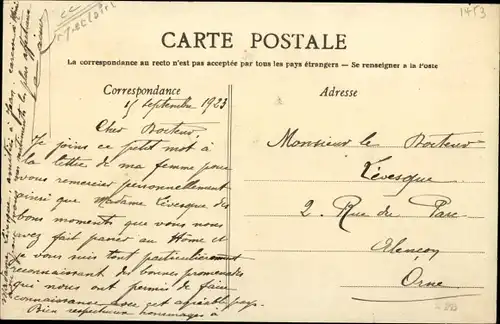 1453
CARTE POSTALE
La correspondance au recto n'est pas acceptée par tous les pays étrangers — Se renseigner à la Poste
Correspondance
15 septembre 1923
Cher Docteur,
Je joins ce petit mot à
la lettre de ma femme pour
vous remercier personnellement
ainsi que Madame Levesque des
bons moments que vous nous
avez fait passer au Home et
je vous suis tout particulièrement
reconnaissant de bonnes promenades
qui nous ont permis de faire
connaissance avec cet agréable pays.
Bien respectueux hommages à
Adresse
Monsieur le Docteur
Levesque
2. Rue du Parc
Alençon
Orne